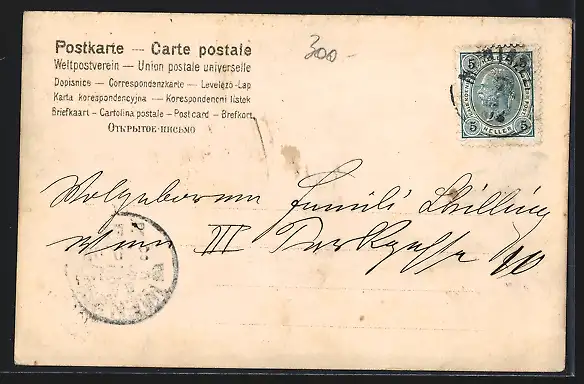 Postkarte — Carte postale
Weltpostverein — Union postale universelle
Dopisnice — Correspondenzkarte — Levelezö-Lap
Karta korespondencyjna — Korespondencni listek
Briefkaart — Cartolina postale — Post card — Brefkort
Открытое письмо
300-
5 5
5 HELLER 5
Wolgeboren Famili Schilling
Wien III Parkgasse 10
WIEN